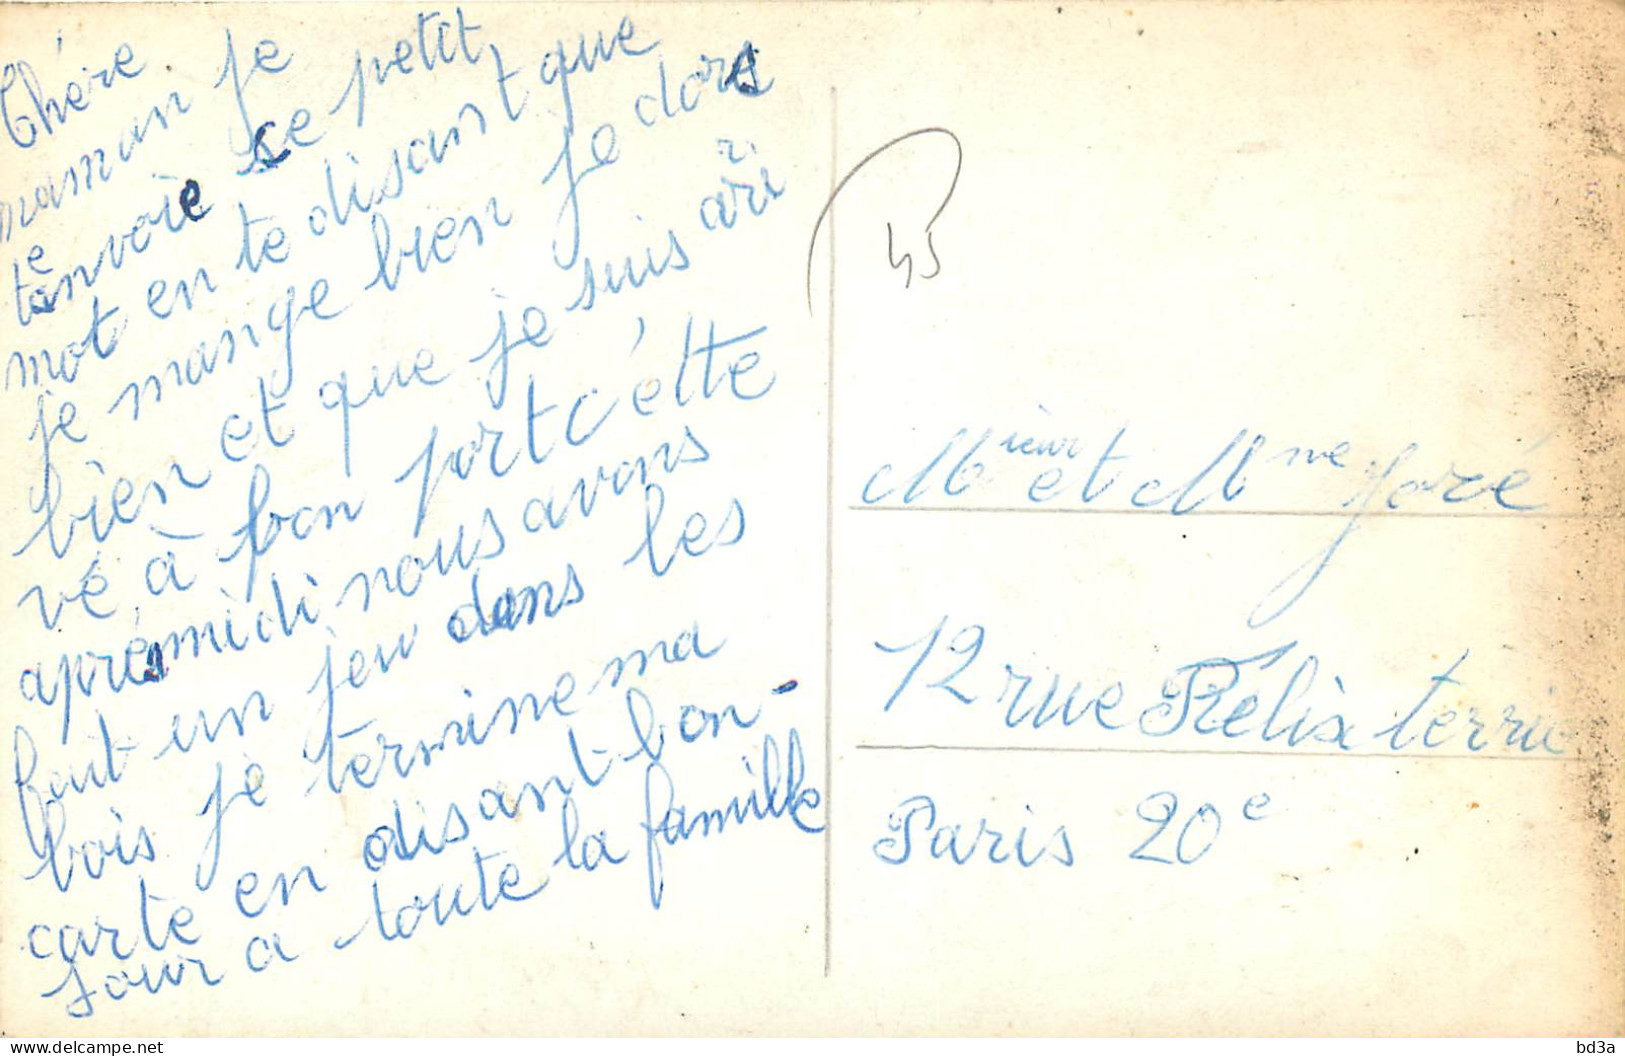 Chére
maman je
tenvoie ce petit
mot en te disant que
je mange bien je dors
bien et que je suis arri
vé à bon port cétte
aprés midi nous avons
fait un jeu dans les
bois je termine ma
carte en disant bon-
jour a toute la famille
45
Mieur et Mme Joré
12 rue Félix terrier
Paris 20e
www.delcampe.net
bd3a